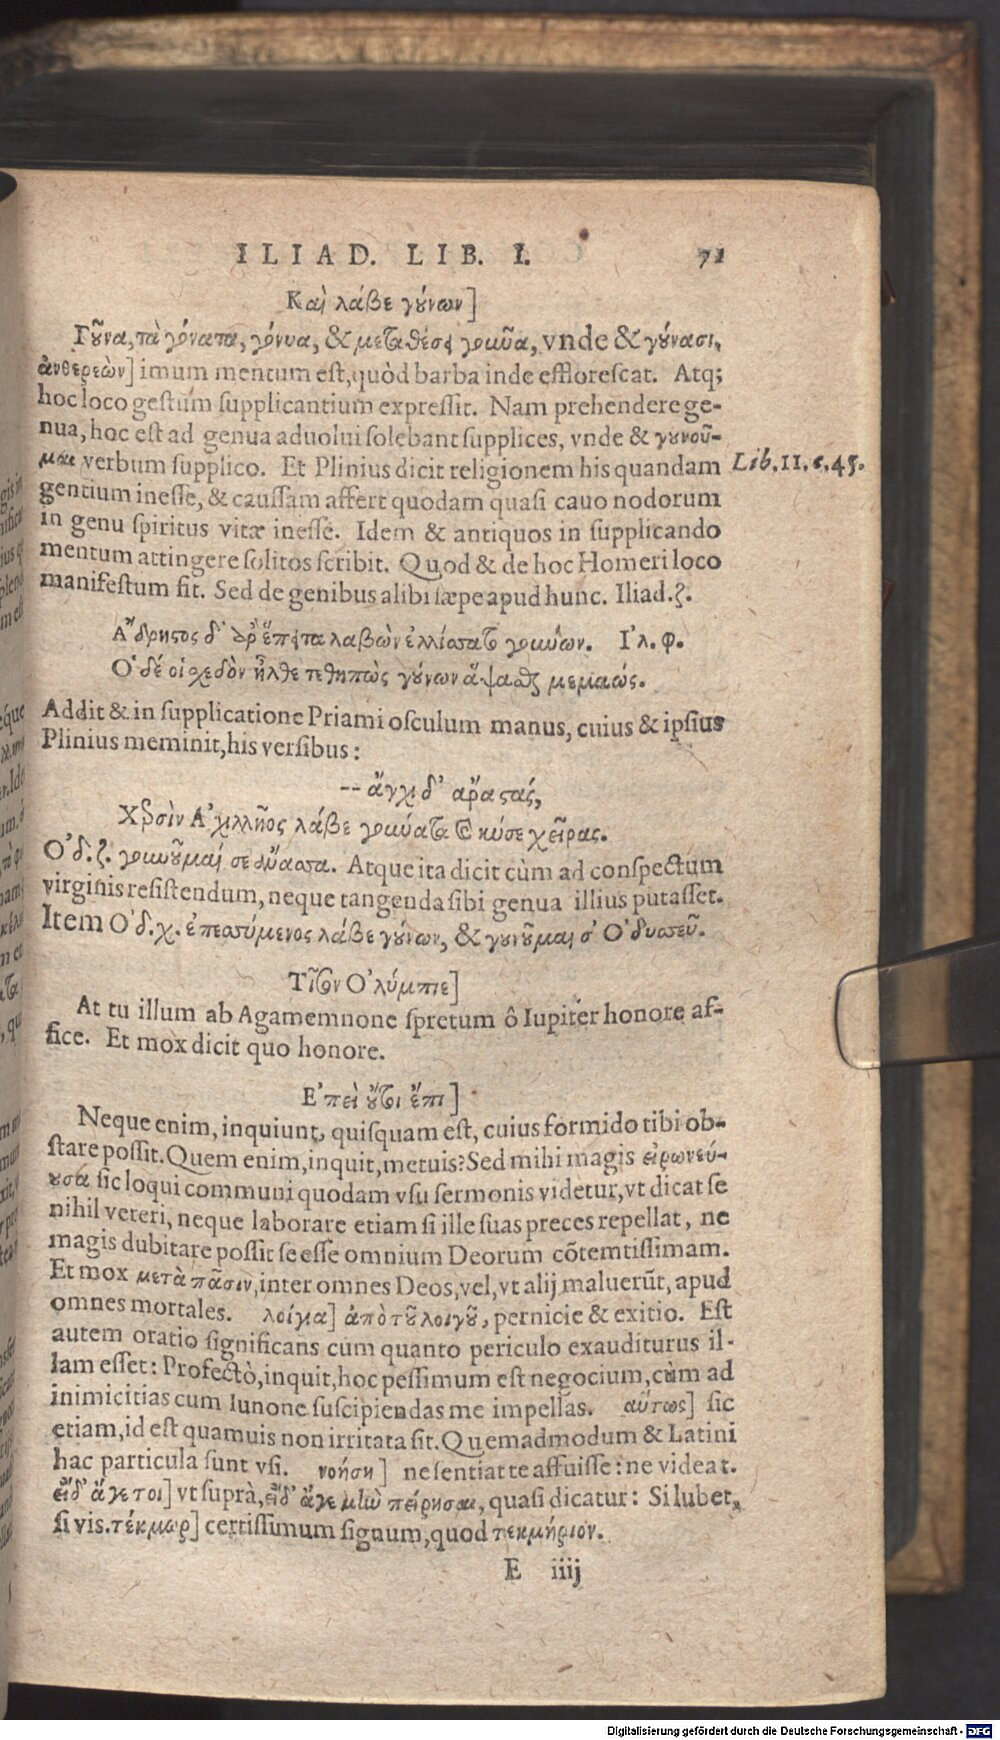 ILIAD. LIB. I. 71
Καὶ λάβε γούνων]
Γοῦνα, τὰ γόνατα, γόνυα, & μεταθέσει γουνῦα, vnde & γούνασι,
ἀνθερεὼν] imum mentum est, quòd barba inde efflorescat. Atq;
hoc loco gestum supplicantium expressit. Nam prehendere ge-
nua, hoc est ad genua aduolui solebant supplices, vnde & γουνοῦ-
μαι verbum supplico. Et Plinius dicit religionem his quandam
Lib. 11. c. 45.
gentium inesse, & caussam affert quodam quasi cauo nodorum
in genu spiritus vitæ inesse. Idem & antiquos in supplicando
mentum attingere solitos scribit. Quod & de hoc Homeri loco
manifestum sit. Sed de genibus alibi sæpe apud hunc. Iliad. ζ.
Ἄδρηστος δ' ἄρ' ἔπειτα λαβὼν ἐλλίσσατο γουνῶν. Ἰλ. φ.
Ὁ δέ οἱ σχεδὸν ἦλθε τεθηπὼς γούνων ἅψασθαι μεμαώς.
Addit & in supplicatione Priami osculum manus, cuius & ipsius
Plinius meminit, his versibus:
-- ἄγχι δ' ἄρα στάς,
Χερσὶν Ἀχιλλῆος λάβε γούνατα καὶ κύσε χεῖρας.
Ὀδ. ζ. γουνοῦμαί σε ἄνασσα. Atque ita dicit cùm ad conspectum
virginis resistendum, neque tangenda sibi genua illius putasset.
Item Ὀδ. χ. ἐπεσσύμενος λάβε γούνων, & γουνοῦμαι σ' Ὀδυσσεῦ.
Τῖσον Ὀλύμπιε]
At tu illum ab Agamemnone spretum ô Iupiter honore af-
fice. Et mox dicit quo honore.
Ἐπεὶ οὔτοι ἔπι]
Neque enim, inquiunt, quisquam est, cuius formido tibi ob-
stare possit. Quem enim, inquit, metuis? Sed mihi magis εἰρωνεύ-
ουσα sic loqui communi quodam vsu sermonis videtur, vt dicat se
nihil vereri, neque laborare etiam si ille suas preces repellat, ne
magis dubitare possit se esse omnium Deorum cõtemtissimam.
Et mox μετὰ πᾶσιν, inter omnes Deos, vel, vt alij maluerũt, apud
omnes mortales. λοίγια] ἀπὸ τοῦ λοιγοῦ, pernicie & exitio. Est
autem oratio significans cum quanto periculo exauditurus il-
lam esset: Profectò, inquit, hoc pessimum est negocium, cùm ad
inimicitias cum Iunone suscipiendas me impellas. αὔτως] sic
etiam, id est quamuis non irritata sit. Quemadmodum & Latini
hac particula sunt vsi. νοήσῃ] ne sentiat te affuisse: ne videat.
εἰ δ' ἄγε τοι] vt suprà, εἰ δ' ἄγε μὴν πείρησαι, quasi dicatur: Si lubet,
si vis. τέκμωρ] certissimum signum, quod τεκμήριον.
E iiij
Digitalisierung gefördert durch die Deutsche Forschungsgemeinschaft - DFG